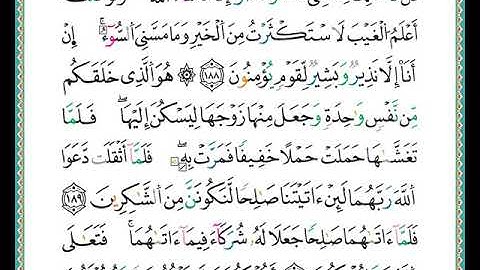 أَعْلَمُ الْغَيْبَ لَاسْتَكْثَرْتُ مِنَ الْخَيْرِ وَمَا مَسَّنِيَ السُّوءُ ۚ إِنْ
أَنَا إِلَّا نَذِيرٌ وَبَشِيرٌ لِّقَوْمٍ يُؤْمِنُونَ ١٨٨ ۞ هُوَ الَّذِي خَلَقَكُم
مِّن نَّفْسٍ وَاحِدَةٍ وَجَعَلَ مِنْهَا زَوْجَهَا لِيَسْكُنَ إِلَيْهَا ۖ فَلَمَّا
تَغَشَّىٰهَا حَمَلَتْ حَمْلًا خَفِيفًا فَمَرَّتْ بِهِ ۖ فَلَمَّا أَثْقَلَت دَّعَوَا
اللَّهَ رَبَّهُمَا لَئِنْ ءَاتَيْتَنَا صَٰلِحًا لَّنَكُونَنَّ مِنَ الشَّٰكِرِينَ ١٨٩
فَلَمَّا ءَاتَىٰهُمَا صَٰلِحًا جَعَلَا لَهُ شُرَكَاءَ فِيمَا ءَاتَىٰهُمَا ۚ فَتَعَٰلَى